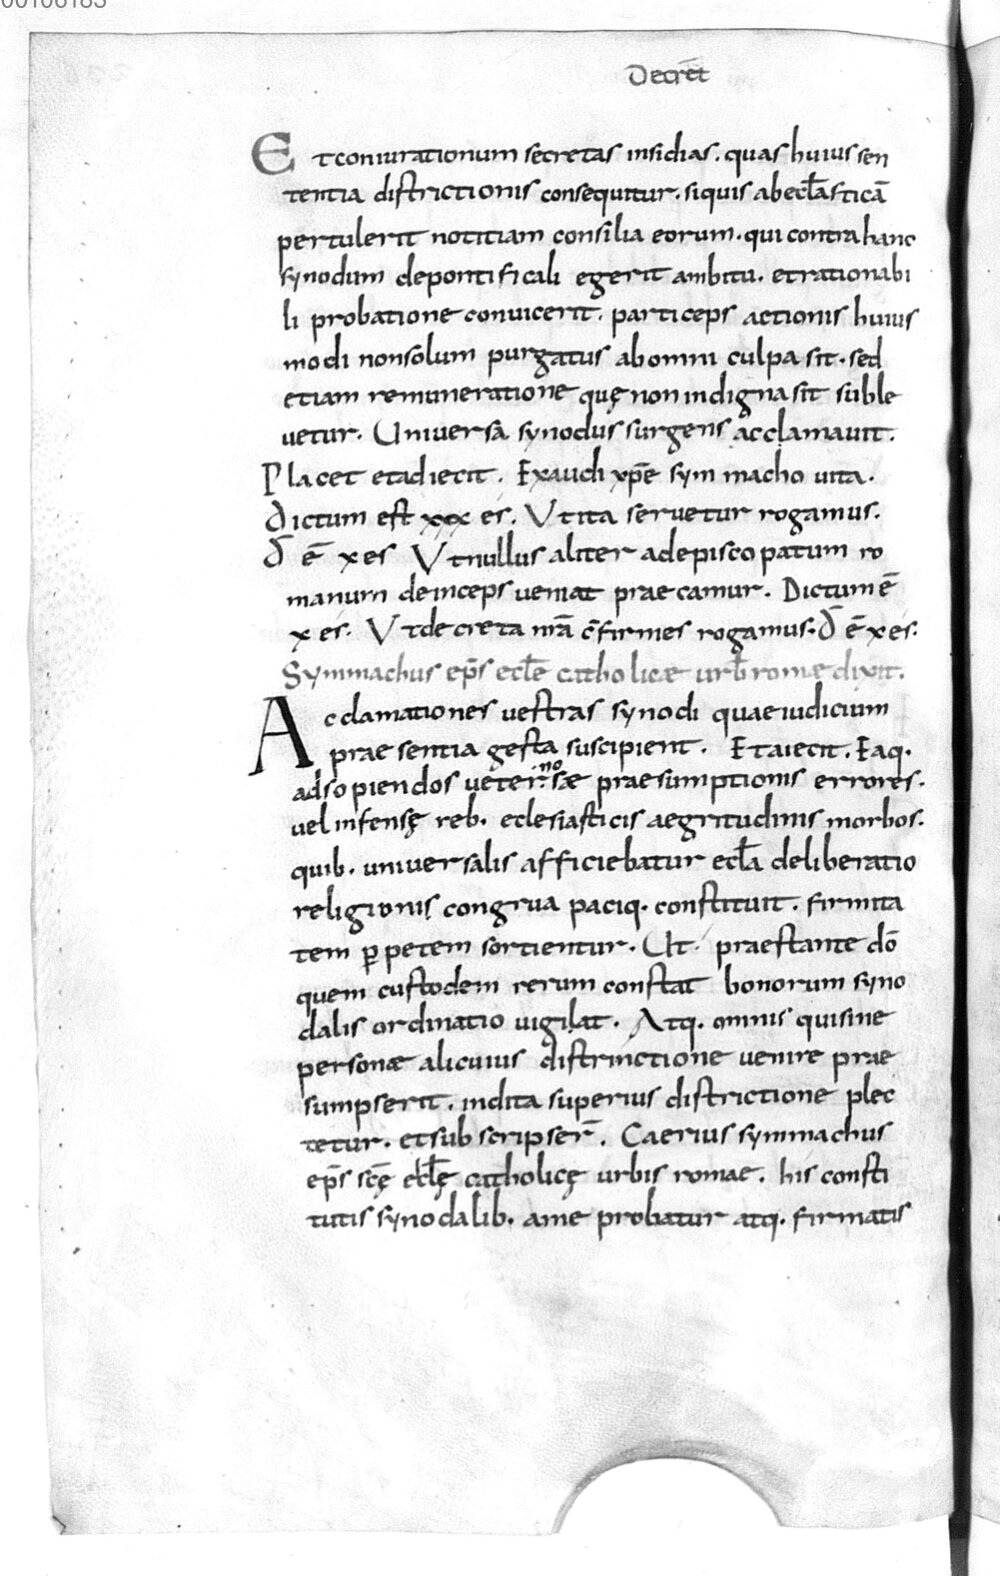 00106183
Decret̄
Et coniurationum secretas insidias. quas huius sen
tentia districtionis consequitur. siquis ab ecl̄asticā
pertulerit notitiam consilia eorum. qui contra hanc
synodum de pontificali egerit ambitu. et rationabi
li probatione convicerit. particeps actionis huius
modi non solum purgatus ab omni culpa sit. sed
etiam remuneratione quę non indigna sit suble
vetur. Universa synodus surgens acclamavit.
Placet et adiecit. Exaudi xp̄e symmacho vita.
Dictum est xxx es. Ut ita servetur rogamus.
D̄ ē x es Ut nullus aliter ad episcopatum ro
manum deinceps veniat praecamur. Dictum ē
x es. Ut decreta nr̄a c̄firmes rogamus. D̄ ē x es.
Symmachus ep̄s ecl̄e catholicae urb̄ romae dixit.
Acclamationes vestras synodi quae iudicium
praesentia gesta suscipient. Et aiecit. Eaq.
ad sopiendos veternosae praesumptionis errores.
vel infensę reb. eclesiasticis aegritudinis morbos.
quib. universalis afficiebatur ecl̄a deliberatio
religionis congrua paciq. constituit. firmita
tem ꝑpetem sortientur. Ut praestante dō
quem custodem rerum constat bonorum syno
dalis ordinatio vigilat. Atq. omnis quisine
personae alicuius distrinctione venire prae
sumpserit. indita superius districtione plec
tetur. et subscripser̄. Caerius symmachus
ep̄s scę̄ ecl̄ę catholicę urbis romae. his consti
tutis synodalib. ame probatur atq. firmatis